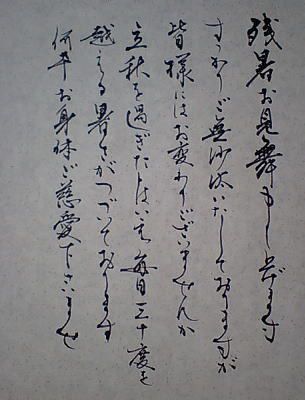 残暑お見舞申し上げます
すっかりご無沙汰いたしておりますが
皆様にはお変わりございませんか
立秋を過ぎたとはいえ毎日三十度を
越える暑さがつづいております
何卒お身体ご慈愛下さいませ